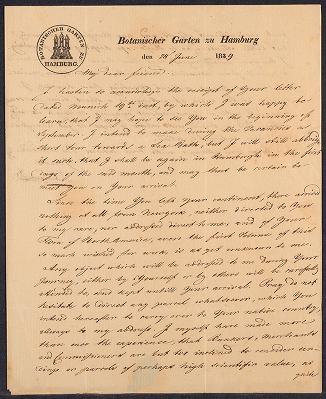 BOTANISCHER GARTEN ZU HAMBURG.
Botanischer Garten zu Hamburg
den 28' June 1839
My dear friend.
I hasten to acknowledge the receipt of Your letter
dated Munich 19th inst, by which I was happy to
learn, that I may hope to see You in the beginning of
September. I intend to make during the vacancies a
short tour towards a Sea Bath, but I will still
it such, that I shall be again in Hambourgh in the first
days of the said month, and may thus be certain to
meet You on Your arrival.
Since the time You left Your continent, there arrived
nothing at all from Newyork, neither directed to You
to my care, nor addressed direct to me, and of Your
Flora of North America, even the first Volume of that
so much wished for work, is as yet unknown to me.
Any object which will be addressed to me during Your
Journey, either by Yourself or by others will be carefully
attended to, and kept untill Your arrival. Pray do not
hesitate to direct any parcel whatsoever, which You
intend hereafter to carry over to Your native country,
always to my address. I myself have made more
than once the experience, that Bankers, Merchants
and Commissioners are too inclined to consider
or parcels of perhaps high scientific value, as
quite